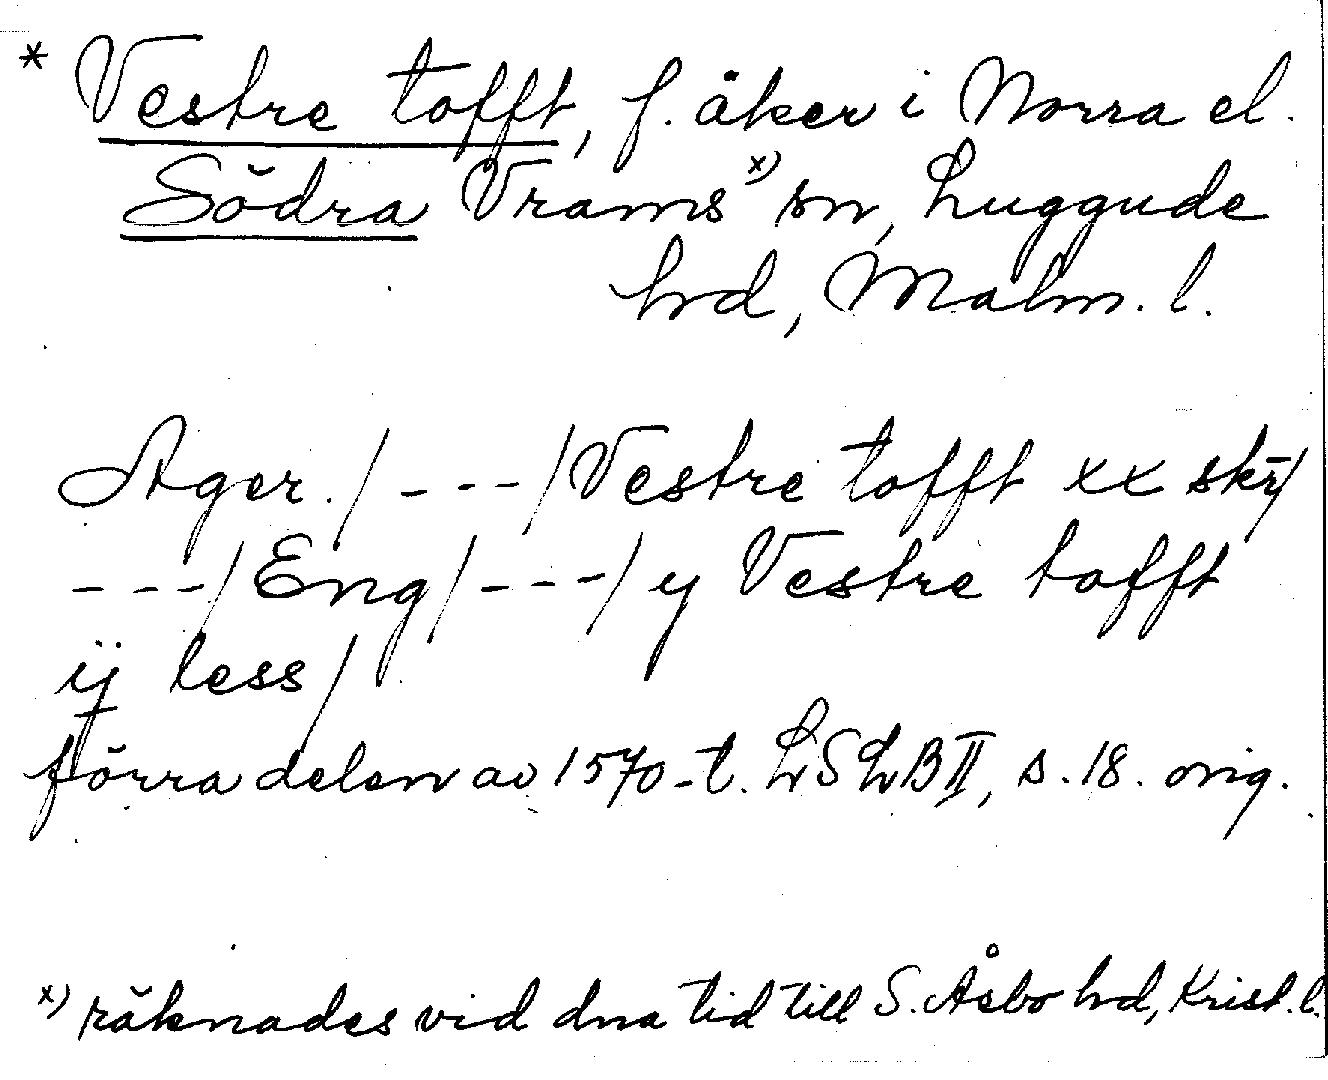 * Vestre tofft, f. åker i Norra el.
Södra Vrams x) sn, Luggude
hrd, Malm. l.
Ager. /---/ Vestre tofft xx skr/
---/ Eng /---/ y Vestre tofft
ij less/
förra delen av 1570-t. LSLB II, s. 18. orig.
x) räknades vid dna tid till S. Åsbo hrd, Krist. l.